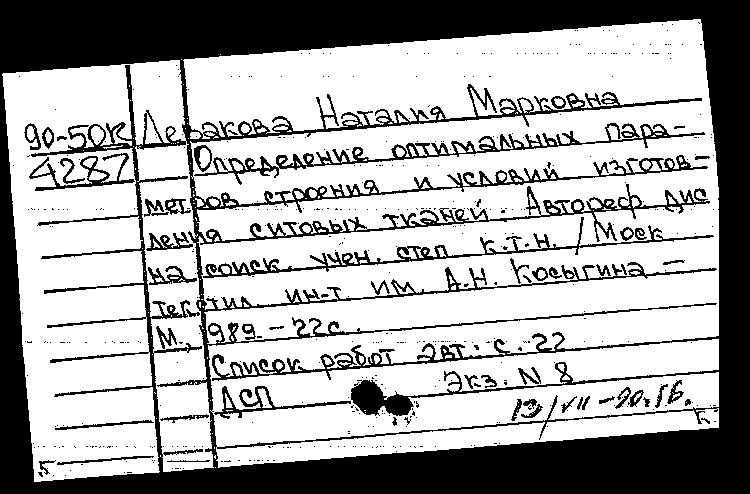 90-50К Левакова Наталия Марковна
4287 Определение оптимальных пара-
метров строения и условий изготов-
ления ситовых тканей. Автореф дис
на соиск. учен. степ к.т.н. / Моск
текстил. ин-т им. А.Н. Косыгина —
М., 1989 - 22с.
Список работ авт.: с. 22
ДСП Экз. N 8
13/VII-90.